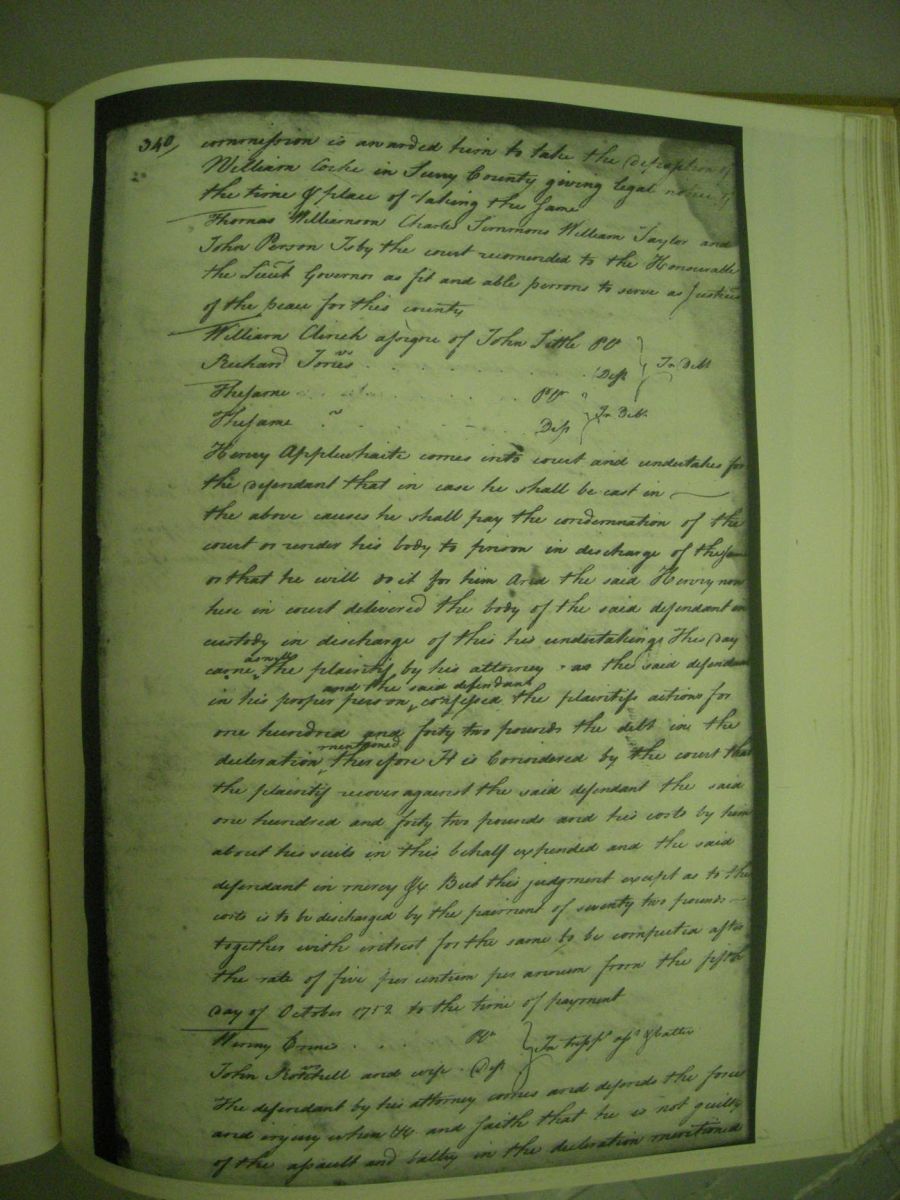 340/ commission is awarded him to take the Deposition of
William Cocke in Surry County giving legal notice of
the time & place of taking the same
Thomas Williamson Charles Simmons William Taylor and
John Person Is by the court recomended to the Honourable
the Lieut Governor as fit and able persons to serve as Justices
of the peace for this county
William Clinch assigne of John Little Plt
Richard Jones Deft } In Debt
The same Plt
The same Deft } In Debt
Henry Applewhaite comes into court and undertakes for
the defendant that in case he shall be cast in
the above causes he shall pay the condemnation of the
court or render his body to prison in discharge of the same
or that he will do it for him And the said Henry now
here in court delivered the body of the said defendant in
custody in discharge of this his undertakings This day
came as well the plaintif by his attorney as the said defendant
in his proper person, and the said defendant confessed the plaintifs actions for
one hundred and forty two pounds the debt in the
declaration mentioned therefore It is Considered by the court that
the plaintif recover against the said defendant the said
one hundred and forty two pounds and his costs by him
about his suits in this behalf expended and the said
defendant in mercy &c. But this judgment except as to the
costs is to be discharged by the paiment of seventy two pounds
together with intrest for the same to be computed after
the rate of five per centum per annum from the fifth
Day of October 1752 to the time of payment
Henry Plt
John and wife Deft } In tresps asst & batter
The defendant by his attorney comes and defends the force
and injury when &c and saith that he is not guilty
of the assault and battry in the declaration mentioned